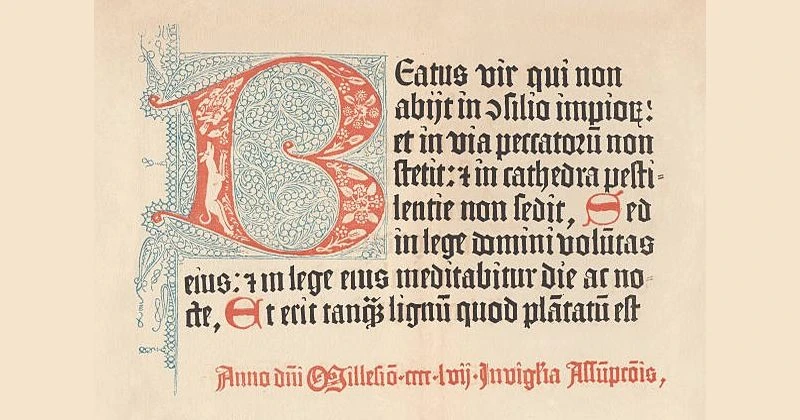 Beatus vir qui non
abijt in ꝯsilio impioꝝ:
et in via peccatorū non
stetit: ⁊ in cathedra pesti-
lentie non sedit, Sed
in lege domini volūtas
eius: ⁊ in lege eius meditabitur die ac no-
cte, Et erit tanqꝫ lignū quod plātatū est
Anno dn̄i Millesiō·cccc·lvij·In vigilia Assūpcōis,